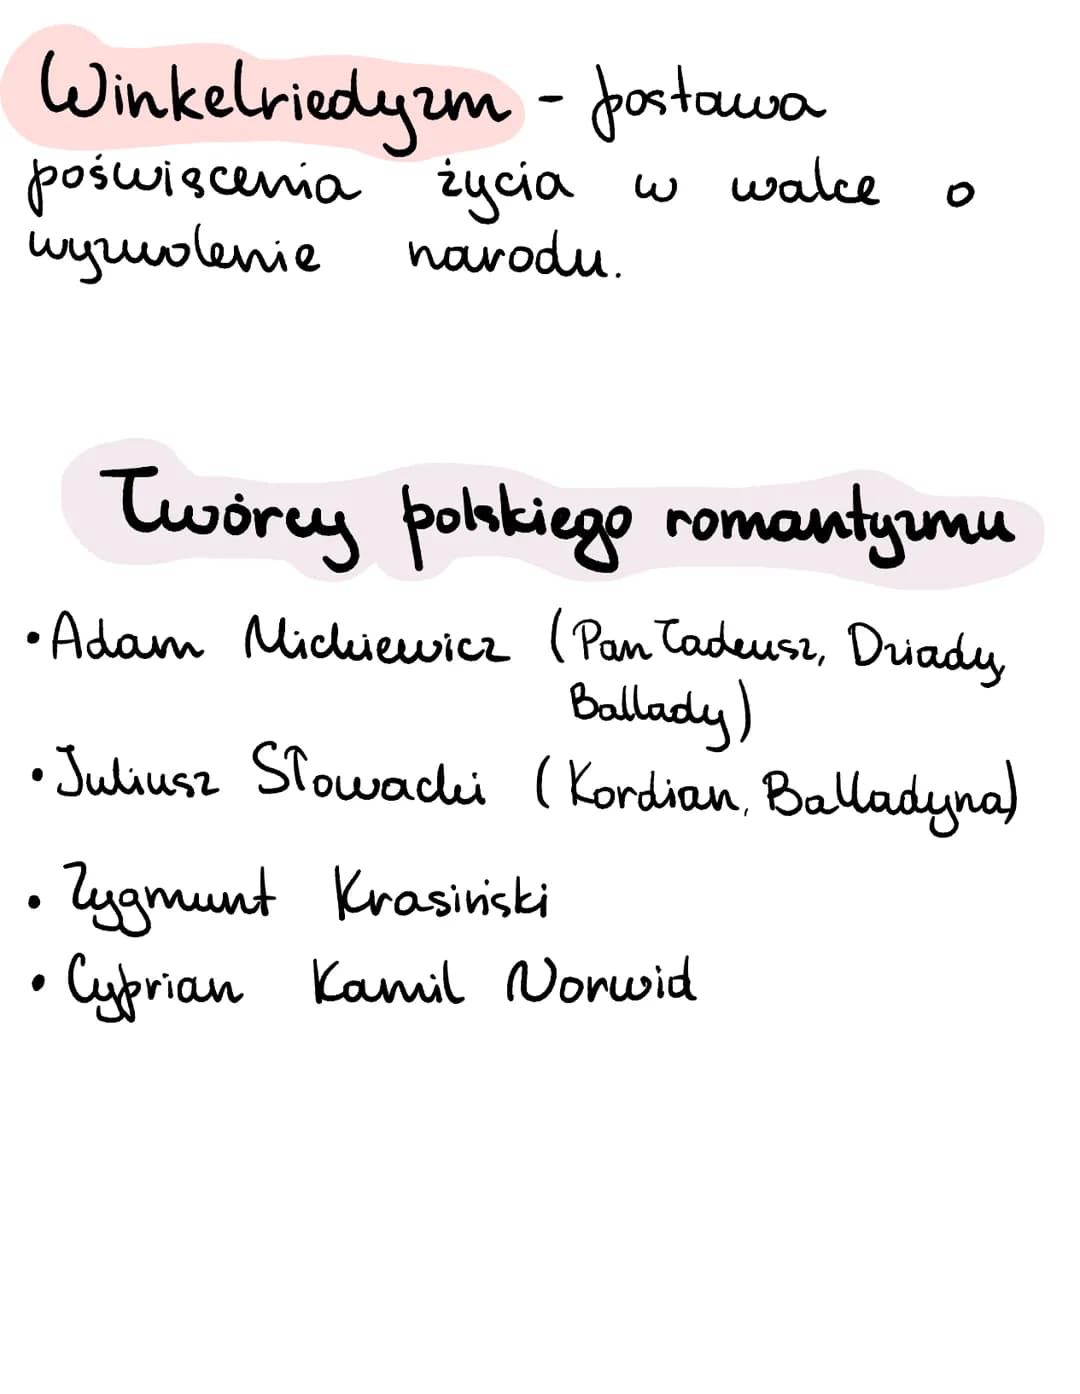 Winkelriedyzm - postawa
poświęcenia życia w walce o
wyzwolenie narodu.
Twórcy polskiego romantyzmu
• Adam Mickiewicz (Pan Tadeusz, Dziady,
Ballady)
• Juliusz Słowacki (Kordian, Balladyna)
• Zygmunt Krasiński
• Cyprian Kamil Norwid